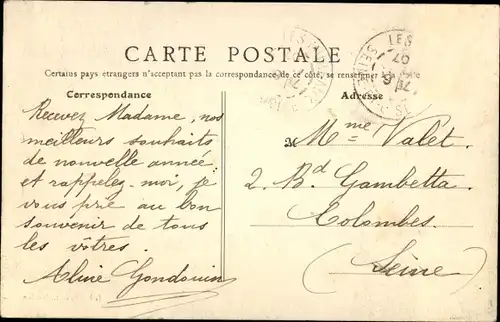 CARTE POSTALE
Certains pays étrangers n'acceptant pas la correspondance de ce côté, se renseigner à la Poste
Correspondance
Adresse
Recevez Madame, nos
meilleurs souhaits
de nouvelle année
et rappelez-moi, je
vous prie au bon
souvenir de tous
les vôtres.
Aline Gondouin
M Mme Valet.
2. Bd Gambetta.
Colombes.
(Seine)
LES
LES